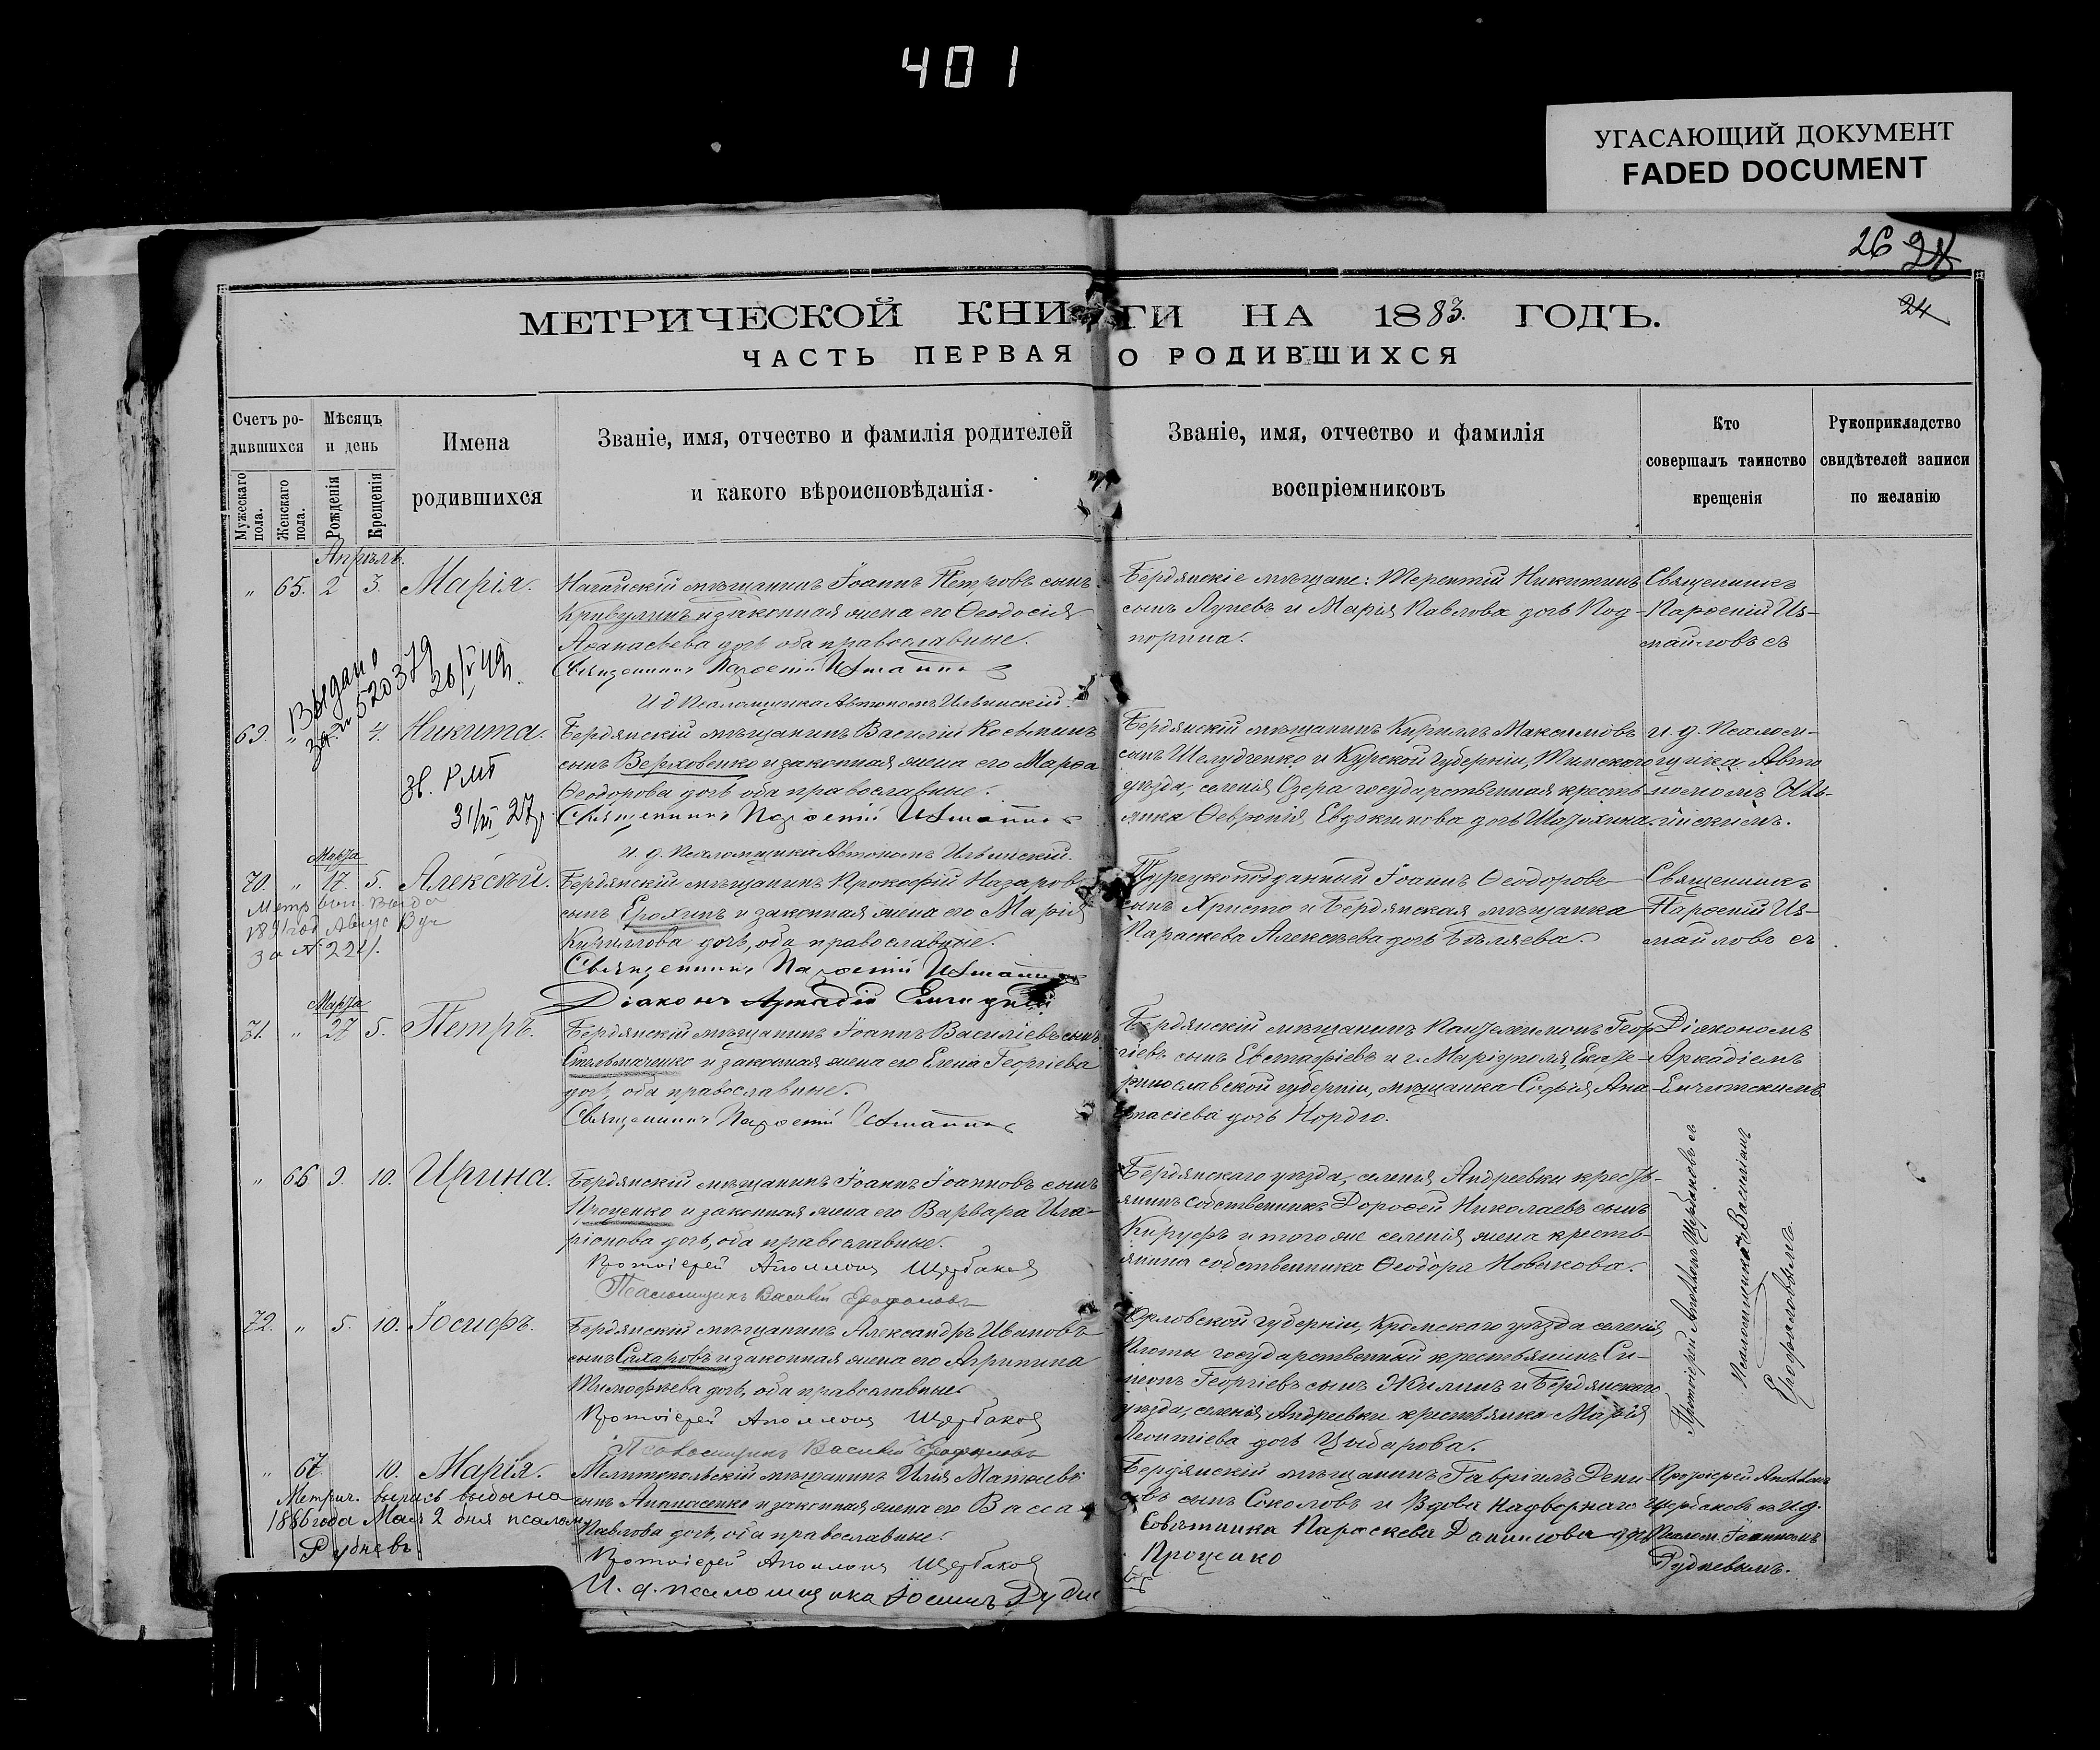 401
УГАСАЮЩИЙ ДОКУМЕНТ
FADED DOCUMENT
26
24
МЕТРИЧЕСКОЙ КНИГИ НА 1883. ГОДЪ.
ЧАСТЬ ПЕРВАЯ О РОДИВШИХСЯ
Счетъ ро-
дившихся
Мужескаго пола.
Женскаго пола.
Мѣсяцъ
и день
Рожденія
Крещенія
Имена
родившихся
Званіе, имя, отчество и фамилія родителей
и какого вѣроисповѣданія.
Званіе, имя, отчество и фамилія
воспріемниковъ
Кто
совершалъ таинство
крещенія
Рукоприкладство
свидѣтелей записи
по желанію
Апрѣль.
" 65. 2 3. Марія.
Ногайскій мѣщанинъ Іоаннъ Петровъ сынъ
Кривулинъ и законная жена его Ѳеодосія
Аѳанасьева дочь оба православные.
Священникъ Парѳеній Измаиловъ
И д Псаломщика Автономъ Ильинскій.
Бердянскіе мѣщане: Терентій Никитинъ
сынъ Лупевъ и Марія Павлова дочь Под-
порина.
Священникъ
Парѳеній Из-
маиловъ съ
Выдано
за № 520379
26/V 49г.
69. " 4. Никита.
зв. РМТ
31/XII 27г.
Бердянскій мѣщанинъ Василій Косьминъ
сынъ Верховенко и законная жена его Марѳа
Ѳеодорова дочь оба православные.
Священникъ Парѳеній Измаиловъ
И. д. Псаломщика Автономъ Ильинскій.
Бердянскій мѣщанинъ Кириллъ Максимовъ
сынъ Шелудченко и Курской губерніи, Тимскаго
уѣзда, селенія Озера государственная кресть-
янка Ѳевронія Евдокимова дочь Шатохина.
и. д. Псалом-
щика Авто
номомъ Иль-
инскимъ.
Марта
70. " 17. 5. Алексѣй.
Метр вып. выда
1891 год Август
за № 224.
Бердянскій мѣщанинъ Прокофій Назаровъ
сынъ Ерохинъ и законная жена его Марія
Кириллова дочь, оба православные.
Священникъ Парѳеній Измаиловъ
Діаконъ Аркадій Енчицкій
Турецкоподданный Іоаннъ Ѳеодоровъ
сынъ Христо и Бердянская мѣщанка
Параскева Алексѣева дочь Бѣляева.
Священникъ
Парѳеній Из-
маиловъ съ
Марта
71. " 27 5. Петръ.
Бердянскій мѣщанинъ Іоаннъ Василіевъ сынъ
Стельмаченко и законная жена его Елена Георгіева
дочь, оба православные.
Священникъ Парѳеній Измаиловъ
Бердянскій мѣщанинъ Пантелеимонъ Геор-
гіевъ сынъ Евстафіевъ и г. Маріуполя, Екате-
ринославской губерніи, мѣщанка Софія Ана-
стасіева дочь Нордю.
Діакономъ
Аркадіемъ
Енчитскимъ
" 66 9. 10. Ирина.
Бердянскій мѣщанинъ Іоаннъ Іоанновъ сынъ
Проценко и законная жена его Варвара Ила-
ріонова дочь, оба православные.
Протоіерей Аполлонъ Щербаковъ
Псаломщикъ Василій Ерофаловъ
Бердянскаго уѣзда, селенія Андреевки кресть-
янинъ собственникъ Дорофей Николаевъ сынъ
Кируфъ и того же селенія жена кресть-
янина собственника Ѳеодора Новикова.
Протоіерей Аполлонъ Щербаковъ съ
Псаломщикомъ Василіемъ
Ерофаловымъ.
72. " 5. 10. Іосифъ.
Бердянскій мѣщанинъ Александръ Ивановъ
сынъ Сахаровъ и законная жена его Агрипина
Тимофѣева дочь, оба православные
Протоіерей Аполлонъ Щербаковъ
Псаломщикъ Василій Ерофаловъ
Орловской губерніи, Кромскаго уѣзда селенія
Плоты государственный крестьянинъ Си-
меонъ Георгіевъ сынъ Жилинъ и Бердянскаго
уѣзда, селенія Андреевки крестьянка Марія
Леонтіева дочь Цыбарова.
" 67. 10. Марія.
Метрич. выпись выдана
1886 года Мая 2 дня псалом.
Рудневъ
Мелитопольскій мѣщанинъ Илія Матѳіевъ
сынъ Апанасенко и законная жена его Васса
Павлова дочь, оба православные.
Протоіерей Аполлонъ Щербаковъ
И. д. псаломщика Іоаннъ Рудне
Бердянскій мѣщанинъ Гавріилъ Дени
овъ сынъ Соколовъ и Вдова Надворнаго
Совѣтника Параскева Данилова дочь
Проценко
Протоіерей Аполлонъ
Щербаковъ съ И. д.
Псалом. Іоанномъ
Рудневымъ.